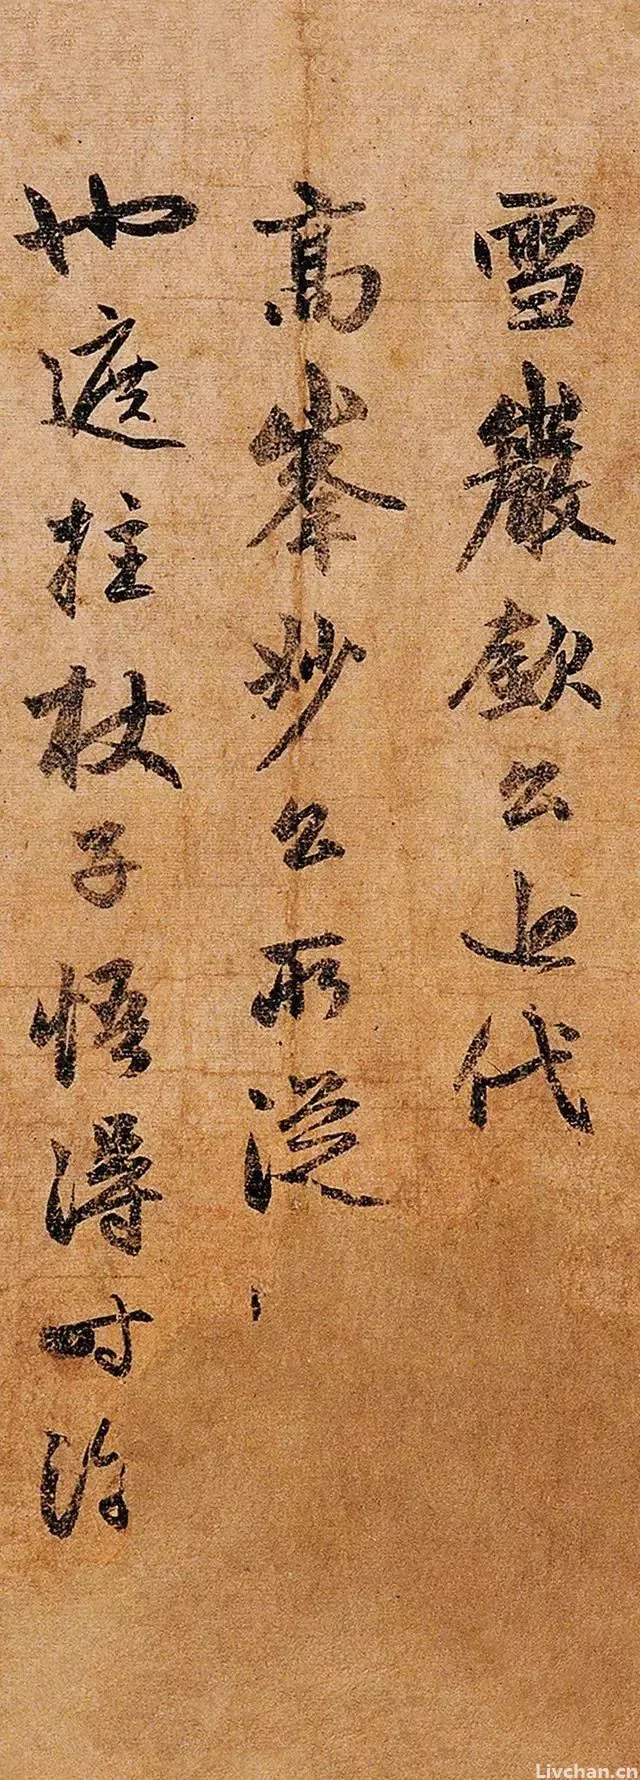 雪巖欽公上代
高峯妙公所從
也遮拄杖子悟得時
Livchan.cn